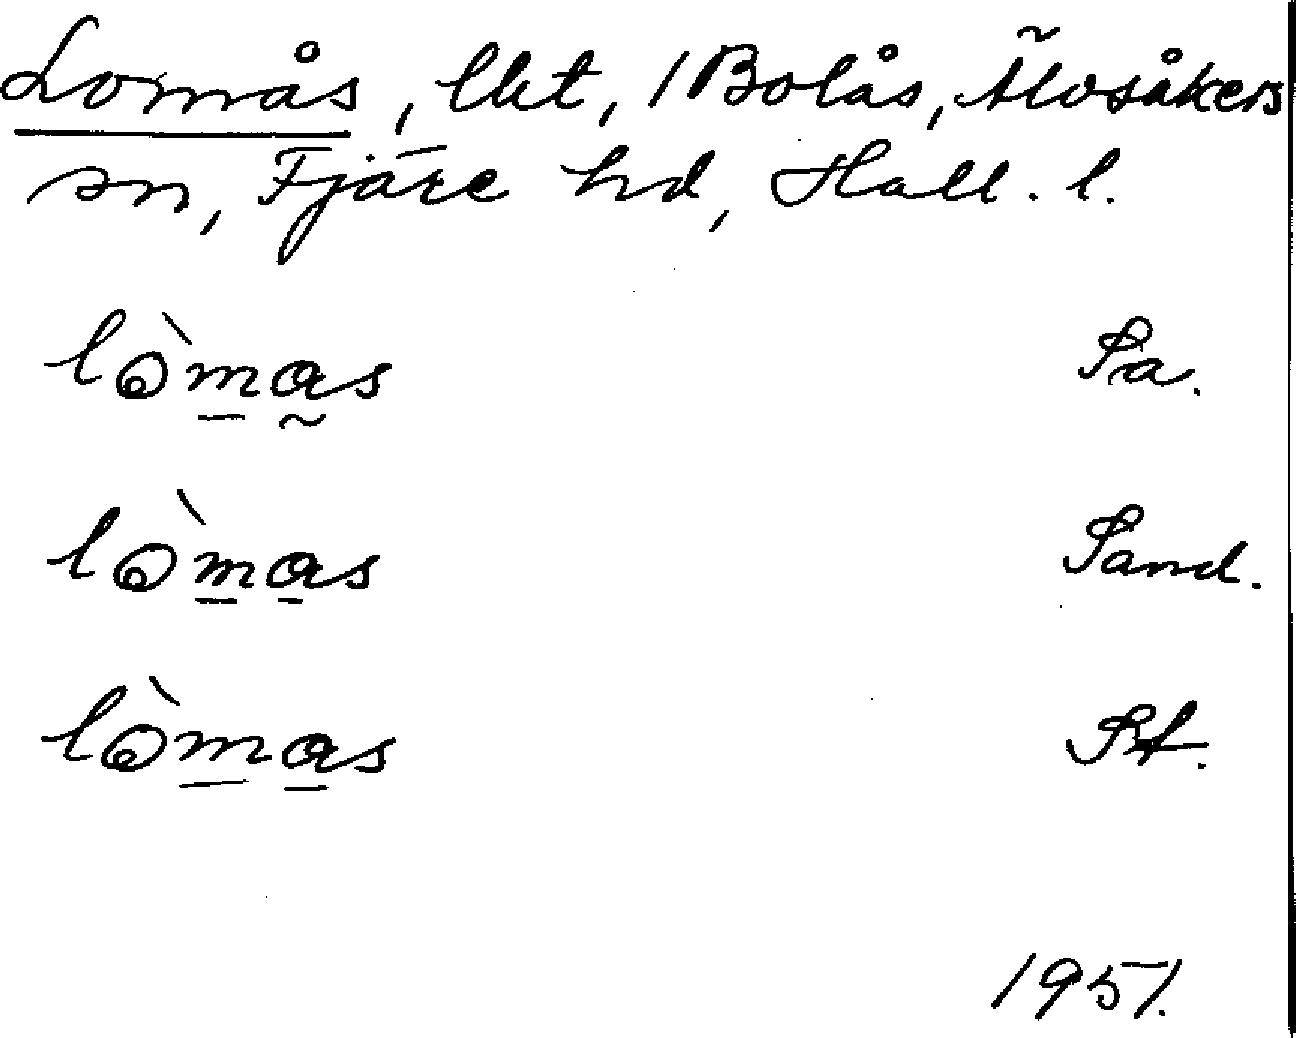 Lomås, lht, 1 Bolås, Älvsåkers
sn, Fjäre hd, Hall. l.
lò̀mas Sa.
lò̀mas Sand.
lò̀mas St.
1951.